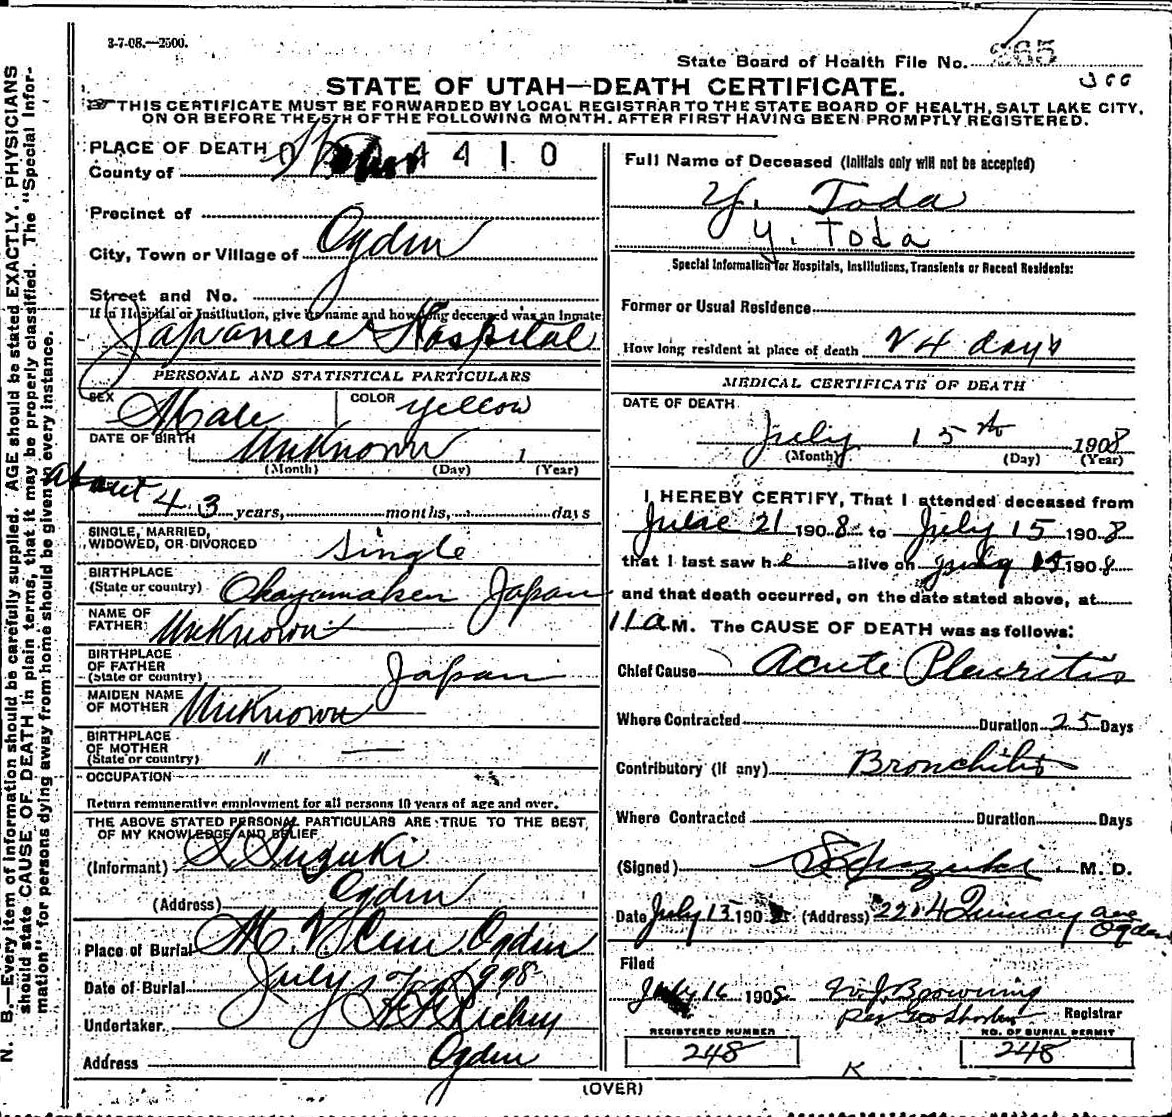 3-7-08.—2500.
State Board of Health File No. 265
366
STATE OF UTAH—DEATH CERTIFICATE.
THIS CERTIFICATE MUST BE FORWARDED BY LOCAL REGISTRAR TO THE STATE BOARD OF HEALTH, SALT LAKE CITY,
ON OR BEFORE THE 5TH OF THE FOLLOWING MONTH. AFTER FIRST HAVING BEEN PROMPTLY REGISTERED.
N. B.—Every item of information should be carefully supplied. AGE should be stated EXACTLY. PHYSICIANS
should state CAUSE OF DEATH in plain terms, that it may be properly classified. The "Special Infor-
mation" for persons dying away from home should be given in every instance.
PLACE OF DEATH
County of
4 1 0
Precinct of
City, Town or Village of Ogden
Street and No.
If in Hospital or Institution, give its name and how long deceased was an inmate
Japanese Hospital
PERSONAL AND STATISTICAL PARTICULARS
SEX Male COLOR yellow
DATE OF BIRTH Unknown
(Month) (Day) (Year)
About 43 years, months, days
SINGLE, MARRIED,
WIDOWED, OR DIVORCED Single
BIRTHPLACE
(State or country) Okayamaken Japan
NAME OF
FATHER Unknown
BIRTHPLACE
OF FATHER
(State or country) Japan
MAIDEN NAME
OF MOTHER Unknown
BIRTHPLACE
OF MOTHER
(State or country) " —
OCCUPATION
Return remunerative employment for all persons 10 years of age and over.
THE ABOVE STATED PERSONAL PARTICULARS ARE TRUE TO THE BEST
OF MY KNOWLEDGE AND BELIEF
(Informant) S. Suzuki
(Address) Ogden
Place of Burial M. V. Cem. Ogden
Date of Burial July 1908
Undertaker
Address Ogden
Full Name of Deceased (Initials only will not be accepted)
Y. Toda
Y. Toda
Special Information for Hospitals, Institutions, Transients or Recent Residents:
Former or Usual Residence
How long resident at place of death 24 days
MEDICAL CERTIFICATE OF DEATH
DATE OF DEATH
July 15th 1908
(Month) (Day) (Year)
I HEREBY CERTIFY, That I attended deceased from
June 21 1908 to July 15 1908
that I last saw he alive on July 15 1908
and that death occurred, on the date stated above, at
11 a M. The CAUSE OF DEATH was as follows:
Chief Cause Acute Pleuritis
Where Contracted Duration 25 Days
Contributory (if any) Bronchitis
Where Contracted Duration Days
(Signed) S. Suzuki M. D.
Date July 15 190 (Address) 2204 Quincy ave
Ogden
Filed
July 16 1908 W. J. Browning
Per Geo Shorten Registrar
REGISTERED NUMBER NO. OF BURIAL PERMIT
248 248
K
(OVER)